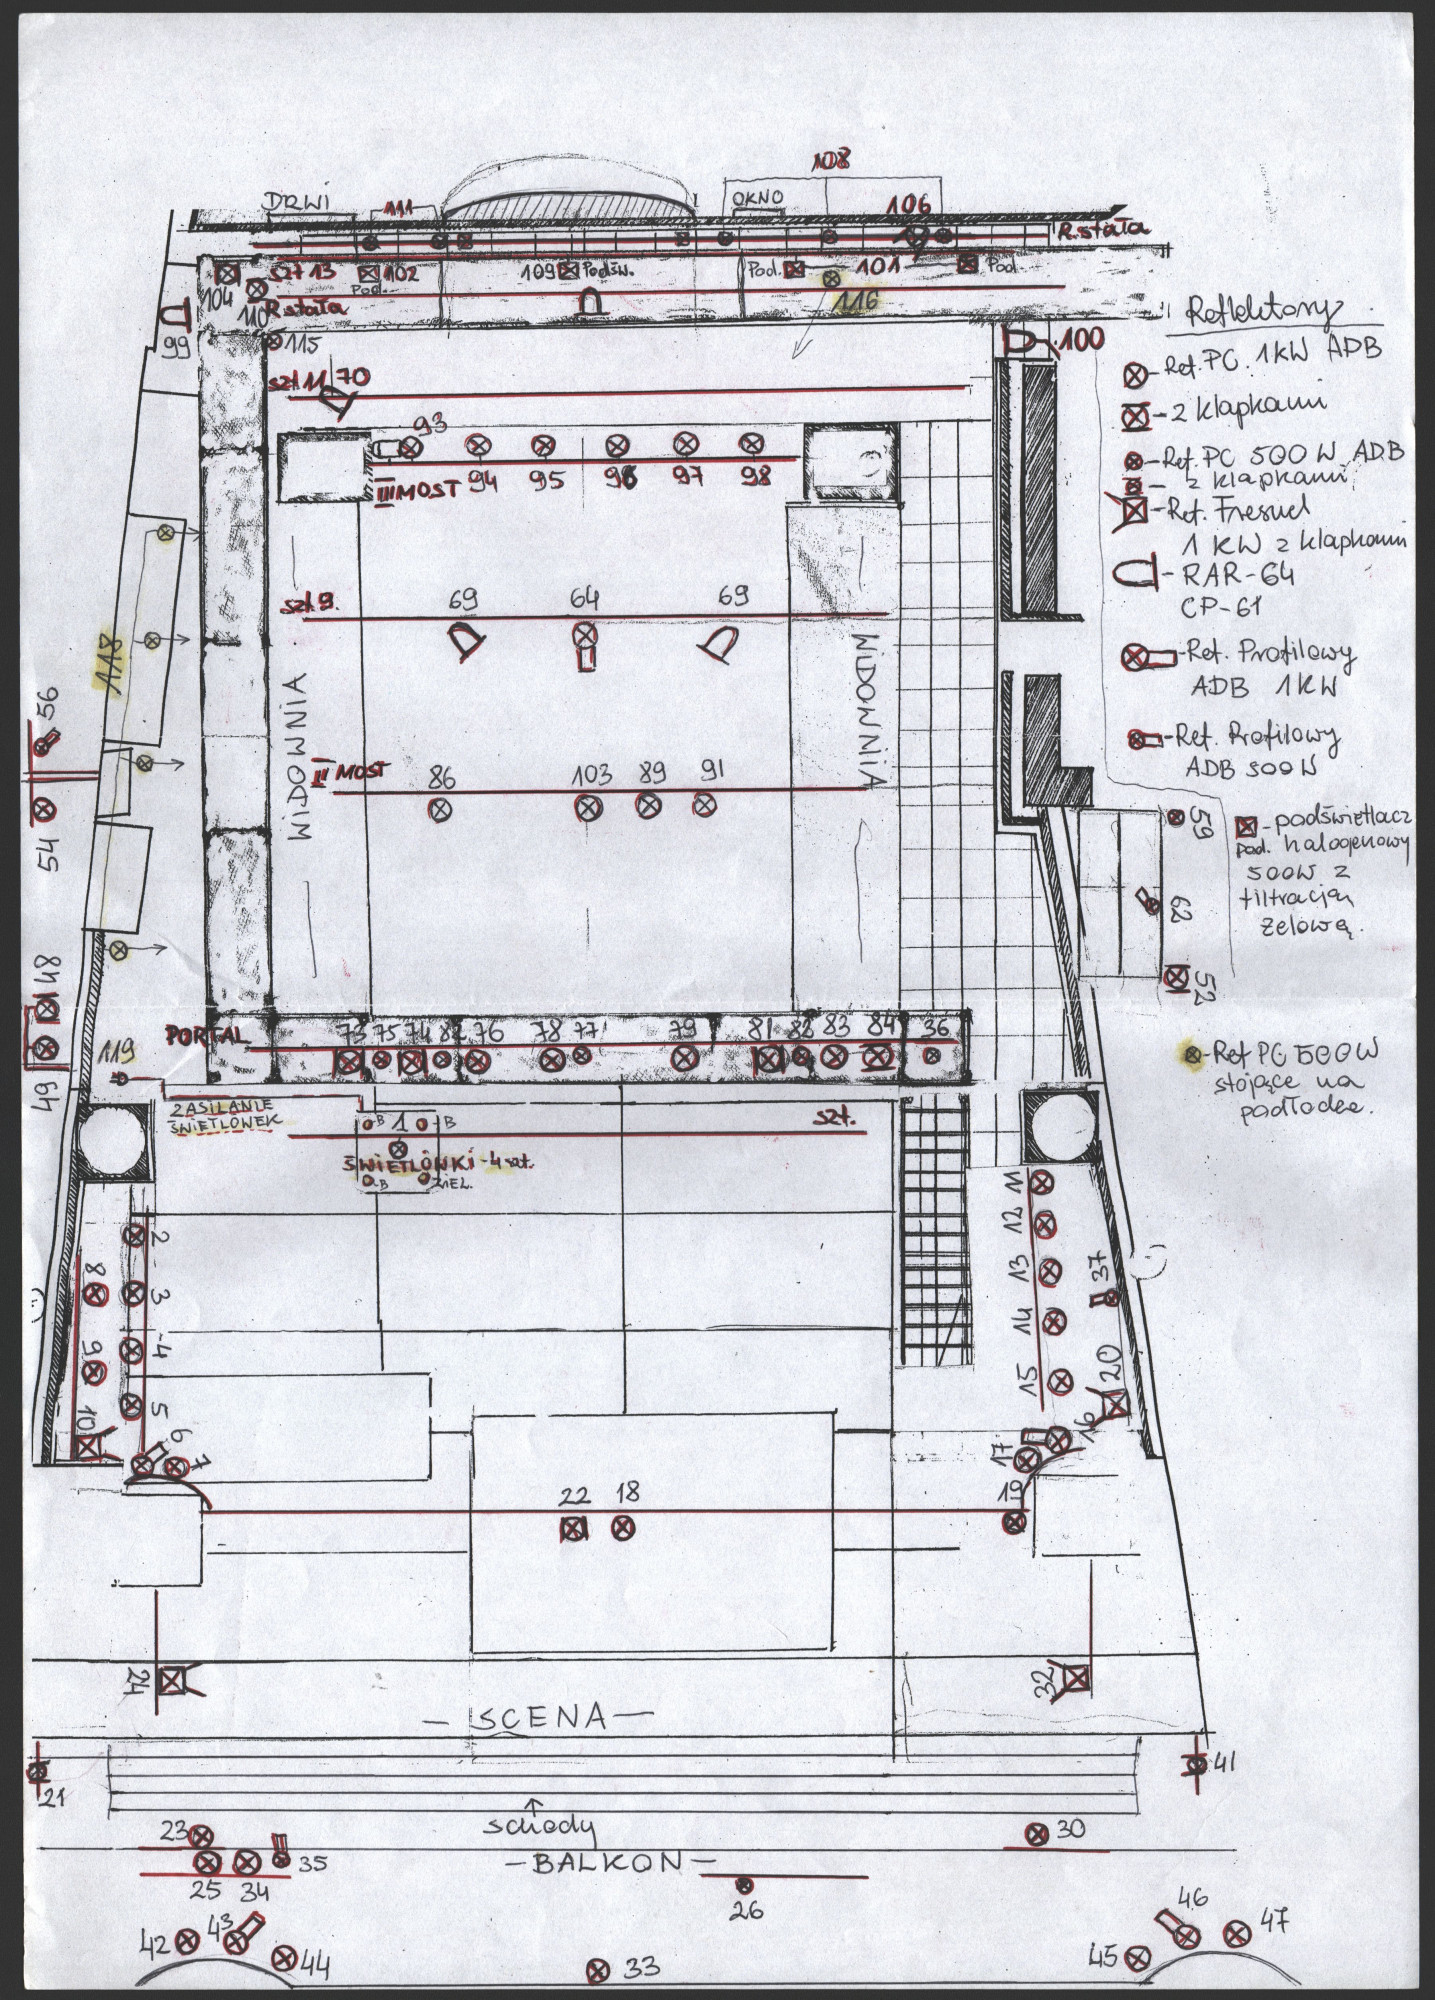 108
DRWI
111
OKNO
106
R.stała
szt 13
102
109
Podśw.
Pod.
101
Pod.
Pod.
104
110
R stała
116
99
115
100
szt. 11
70
93
III MOST
94
95
96
97
98
szt. 9.
69
64
69
118
WIDOWNIA
WIDOWNIA
56
II MOST
86
103
89
91
54
59
62
52
48
49
119
PORTAL
73
75
74
82
76
78
77
79
81
83
84
36
ZASILANIE
ŚWIETLÓWEK
B
1
B
szt.
ŚWIETLÓWKI - 4 szt.
B
ZIEL.
2
3
4
5
6
7
8
9
10
11
12
13
14
15
37
20
16
17
22
18
19
24
32
- SCENA -
21
41
schody
23
30
- BALKON -
25
34
35
26
42
43
44
33
45
46
47
Reflektory
- Ref. PC. 1KW ADB
- z klapkami
- Ref. PC 500 W ADB
- z klapkami
- Ref. Fresnel
1 KW z klapkami
- RAR-64
CP-61
- Ref. Profilowy
ADB 1KW
- Ref. Profilowy
ADB 500W
- podświetlacz
pod. halogenowy
500W z
filtracją
żelową.
- Ref PC 500W
stojące na
podłodze.